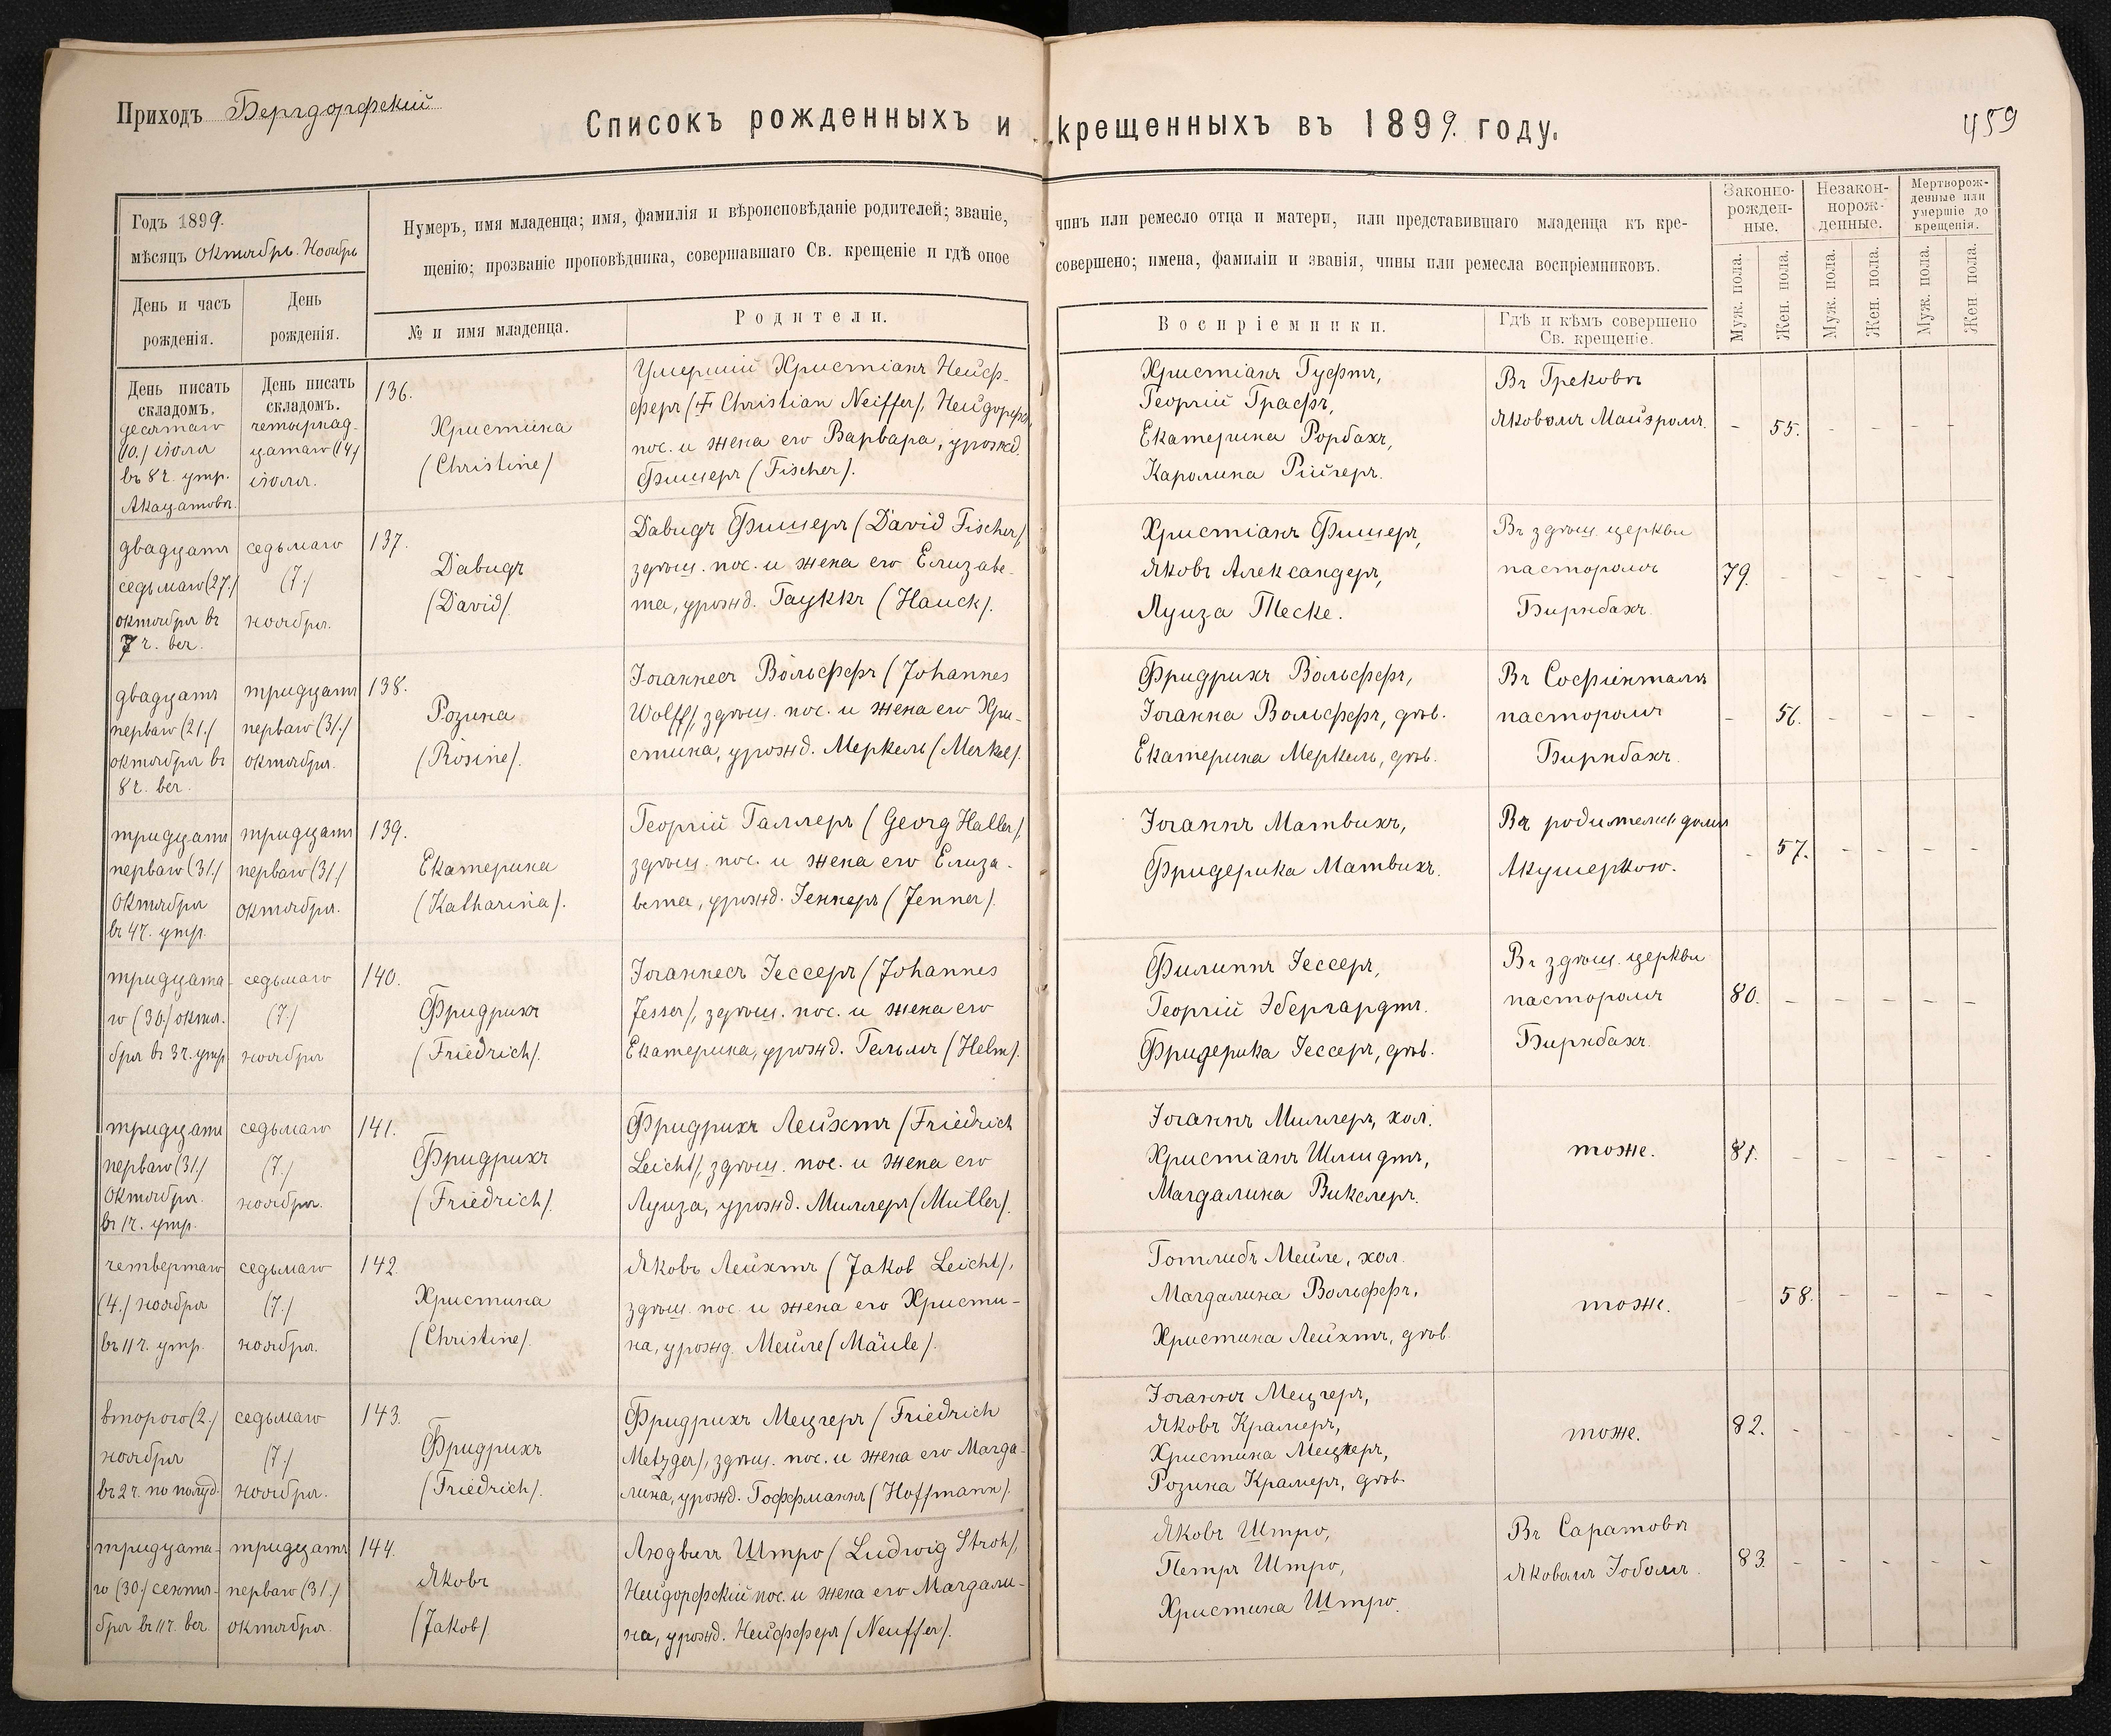 Приходъ Бергдорфскій
Списокъ рожденныхъ и крещенныхъ въ 1899. году.
459
Годъ 1899.
мѣсяцъ Октябрь. Ноябрь
День и часъ рожденія.
День рожденія.
Нумеръ, имя младенца; имя, фамилія и вѣроисповѣданіе родителей; званіе, чинъ или ремесло отца и матери, или представившаго младенца къ кре-
щенію; прозваніе проповѣдника, совершавшаго Св. крещеніе и гдѣ оное совершено; имена, фамиліи и званія, чины или ремесла воспріемниковъ.
№ и имя младенца.
Родители.
Воспріемники.
Гдѣ и кѣмъ совершено
Св. крещеніе.
Законно-
рожден-
ные.
Незакон-
норож-
денные.
Мертворож-
денные или
умершіе до
крещенія.
Муж. пола.
Жен. пола.
Муж. пола.
Жен. пола.
Муж. пола.
Жен. пола.
День писать
складомъ.
десятаго
(10.) іюля
въ 8 ч. утр.
Акацатовъ.
День писать
складомъ.
четырнад-
цатаго (14)
іюля.
136.
Христина
(Christine)
Умершій Христіанъ Нейф-
феръ (Ŧ Christian Neiffer), Нейдорфск.
пос. и жена его Варвара, урожд.
Фишеръ (Fischer).
Христіанъ Гуфтъ,
Георгій Графъ,
Екатерина Рорбахъ,
Каролина Рійгеръ.
Въ Грековѣ
Яковомъ Майэромъ.
- 55. - - - -
двадцать
седьмаго (27.)
октября въ
7 ч. веч.
седьмаго
(7.)
ноября.
137.
Давидъ
(David).
Давидъ Фишеръ (David Fischer)
здѣш. пос. и жена его Елизаве-
та, урожд. Гауккъ (Hauck).
Христіанъ Фишеръ,
Яковъ Александеръ,
Луиза Теске.
Въ здѣш. церкви
пасторомъ
Бирнбахъ.
79. - - - - -
двадцать
перваго (21.)
октября въ
8 ч. веч.
тридцать
перваго (31.)
октября.
138.
Розина
(Rosine).
Іоганнесъ Вольффъ (Johannes
Wolff), здѣш. пос. и жена его Хри-
стина, урожд. Меркель (Merkel).
Фридрихъ Вольффъ,
Іоганна Вольффъ, дѣв.
Екатерина Меркель, дѣв.
Въ Софіенталѣ
пасторомъ
Бирнбахъ.
- 56. - - - -
тридцать
перваго (31.)
Октября
въ 4 ч. утр.
тридцать
перваго (31.)
октября.
139.
Екатерина
(Katharina).
Георгій Галлеръ (Georg Haller),
здѣш. пос. и жена его Елиза-
вета, урожд. Іеннеръ (Jenner).
Іоганнъ Матвихъ,
Фридерика Матвихъ.
Въ родительск. домѣ
Акушеркою.
- 57. - - - -
тридцата-
го (30.) октя-
бря въ 3 ч. утр.
седьмаго
(7.)
ноября
140.
Фридрихъ
(Friedrich).
Іоганнесъ Іессеръ (Johannes
Jesser), здѣш. пос. и жена его
Екатерина, урожд. Гельмъ (Helm).
Филиппъ Іессеръ,
Георгій Эбергардтъ.
Фридерика Іессеръ, дѣв.
Въ здѣш. церкви
пасторомъ
Бирнбахъ.
80. - - - - -
тридцать
перваго (31.)
Октября.
въ 1 ч. утр.
седьмаго
(7.)
ноября.
141.
Фридрихъ
(Friedrich).
Фридрихъ Лейхтъ (Friedrich
Leicht), здѣш. пос. и жена его
Луиза, урожд. Миллеръ (Müller).
Іоганнъ Миллеръ, хол.
Христіанъ Шмидтъ,
Магдалина Викслеръ.
тоже.
81. - - - - -
четвертаго
(4.) ноября
въ 11 ч. утр.
седьмаго
(7.)
ноября.
142.
Христина
(Christine).
Яковъ Лейхтъ (Jakob Leicht),
здѣш. пос. и жена его Христи-
на, урожд. Мейле (Mäule).
Готлибъ Мейле, хол.
Магдалина Вольффъ,
Христина Лейхтъ, дѣв.
тоже.
- 58. - - - -
второго (2.)
ноября
въ 2 ч. по полуд.
седьмаго
(7.)
ноября.
143.
Фридрихъ
(Friedrich).
Фридрихъ Мецгеръ (Friedrich
Metzger), здѣш. пос. и жена его Магда-
лина, урожд. Гоффманнъ (Hoffmann).
Іоганнъ Мецгеръ,
Яковъ Крамеръ,
Христина Мецгеръ,
Розина Крамеръ, дѣв.
тоже.
82. - - - - -
тридцата-
го (30.) сентя-
бря въ 11 ч. веч.
тридцать
перваго (31.)
октября.
144.
Яковъ
(Jakob).
Людвигъ Штро (Ludwig Stroh),
Нейдорфскій пос. и жена его Магдали-
на, урожд. Нейфферъ (Neuffer).
Яковъ Штро,
Петръ Штро,
Христина Штро.
Въ Саратовѣ
Яковомъ Зобомъ.
83. - - - - -